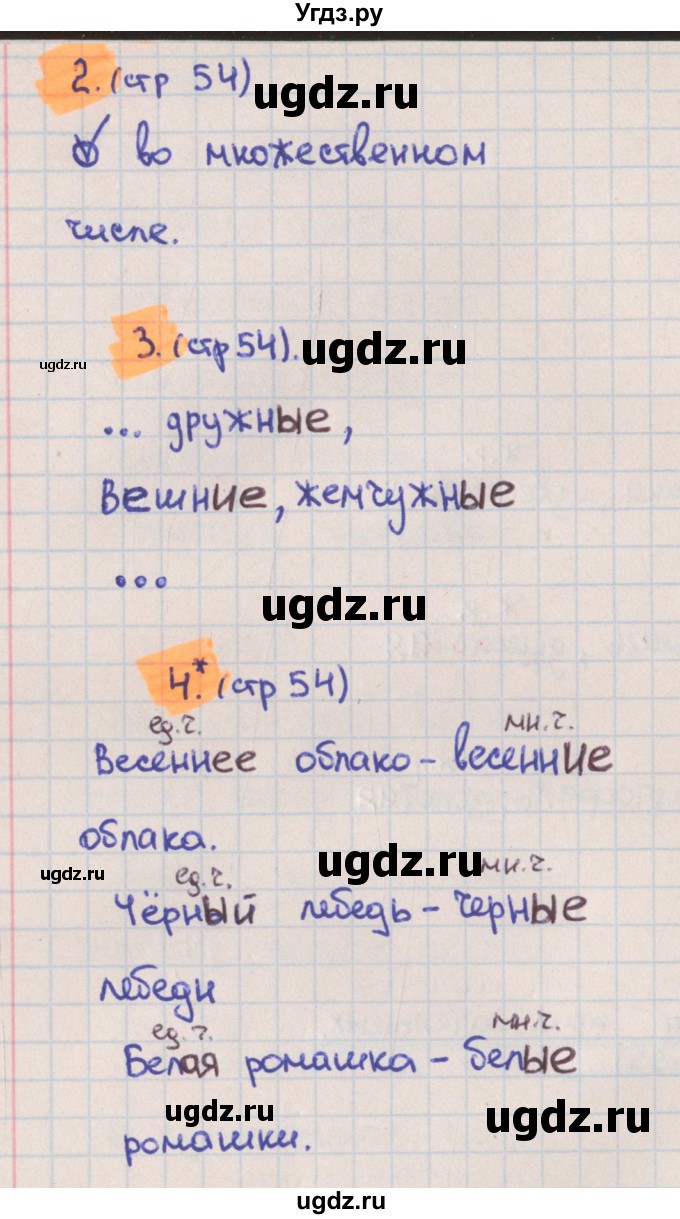 Угдз.ру
2. (стр 54)
ugdz.ru
во множественном
числе.
3. (стр 54).
ugdz.ru
ugdz.ru
... дружные,
Вешние, жемчужные
...
ugdz.ru
4.* (стр 54)
ед.ч. мн.ч.
Весеннее облако – весенние
облака.
ugdz.ru
ugdz.ru
ед.ч. мн.ч.
Чёрный лебедь – черные
лебеди
ед.ч. мн.ч.
Белая ромашка – белые
ugdz.ru
ugdz.ru
ромашки.
ugdz.ru